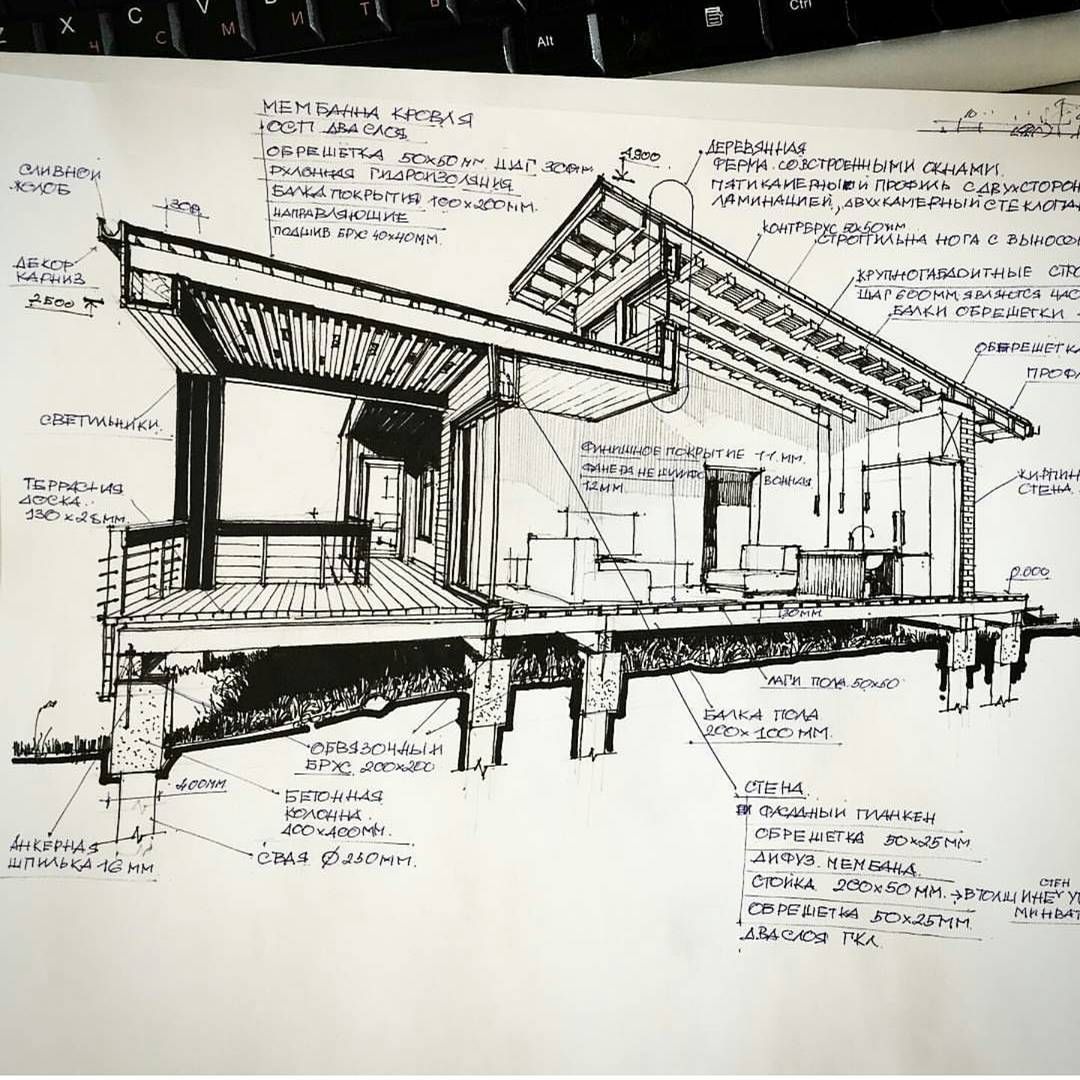 X
C
V
Alt
Ctrl
Ч
С
М
И
Т
МЕМБАННА КРОВЛЯ
ОСП ДВА СЛОЯ
ОБРЕШЕТКА 50x50мм ШАГ 300мм
РУЛОННАЯ ГИДРОИЗОЛЯЦИЯ
БАЛКА ПОКРЫТИЯ 100x200мм.
НАПРАВЛЯЮЩИЕ
ПОДШИВ БРУС 40x40мм.
СЛИВНОЙ
ЖОЛОБ
300
ДЕКОР
КАРНИЗ
2500
4.900
ДЕРЕВЯННАЯ
ФЕРМА СО ВСТРОЕННЫМИ ОКНАМИ.
ПЯТИКАМЕРНЫЙ ПРОФИЛЬ С ДВУХСТОРОН
ЛАМИНАЦИЕЙ, ДВУХКАМЕРНЫЙ СТЕКЛОПА
КОНТРБРУС 50x50мм
СТРОПИЛЬНА НОГА С ВЫНОСО
КРУПНОГАБАОИТНЫЕ СТРО
ШАГ 600ММ ЯВЛЯЮТСЯ ЧАС
БАЛКИ ОБРЕШЕТКИ
ОБРЕШЕТКА
ПРОФ
СВЕТИЛЬНИКИ.
ТЕРРАСНАЯ
ДОСКА.
130x28мм
ФИНИШНОЕ ПОКРЫТИЕ 11мм.
ФАНЕРА НЕ ШЛИФО
12мм
КИРПИЧН
СТЕНА.
0.000
130мм
ЛАГИ ПОЛА 50x50
БАЛКА ПОЛА
200x100мм.
ОБВЯЗОЧНЫЙ
БРУС 200x200
400мм
БЕТОННАЯ
КОЛОННА.
400x400мм.
СВАЯ Ø 250мм.
АНКЕРНАЯ
ШПИЛЬКА 16мм
СТЕНА.
ФАСАДНЫЙ ПЛАНКЕН
ОБРЕШЕТКА 50x25мм
ДИФУЗ. МЕМБАНА.
СТОЙКА 200x50мм. → В ТОЛЩИНЕ
СТЕН
МИНВАТ
ОБРЕШЕТКА 50x25мм.
ДВА СЛОЯ ГКЛ.